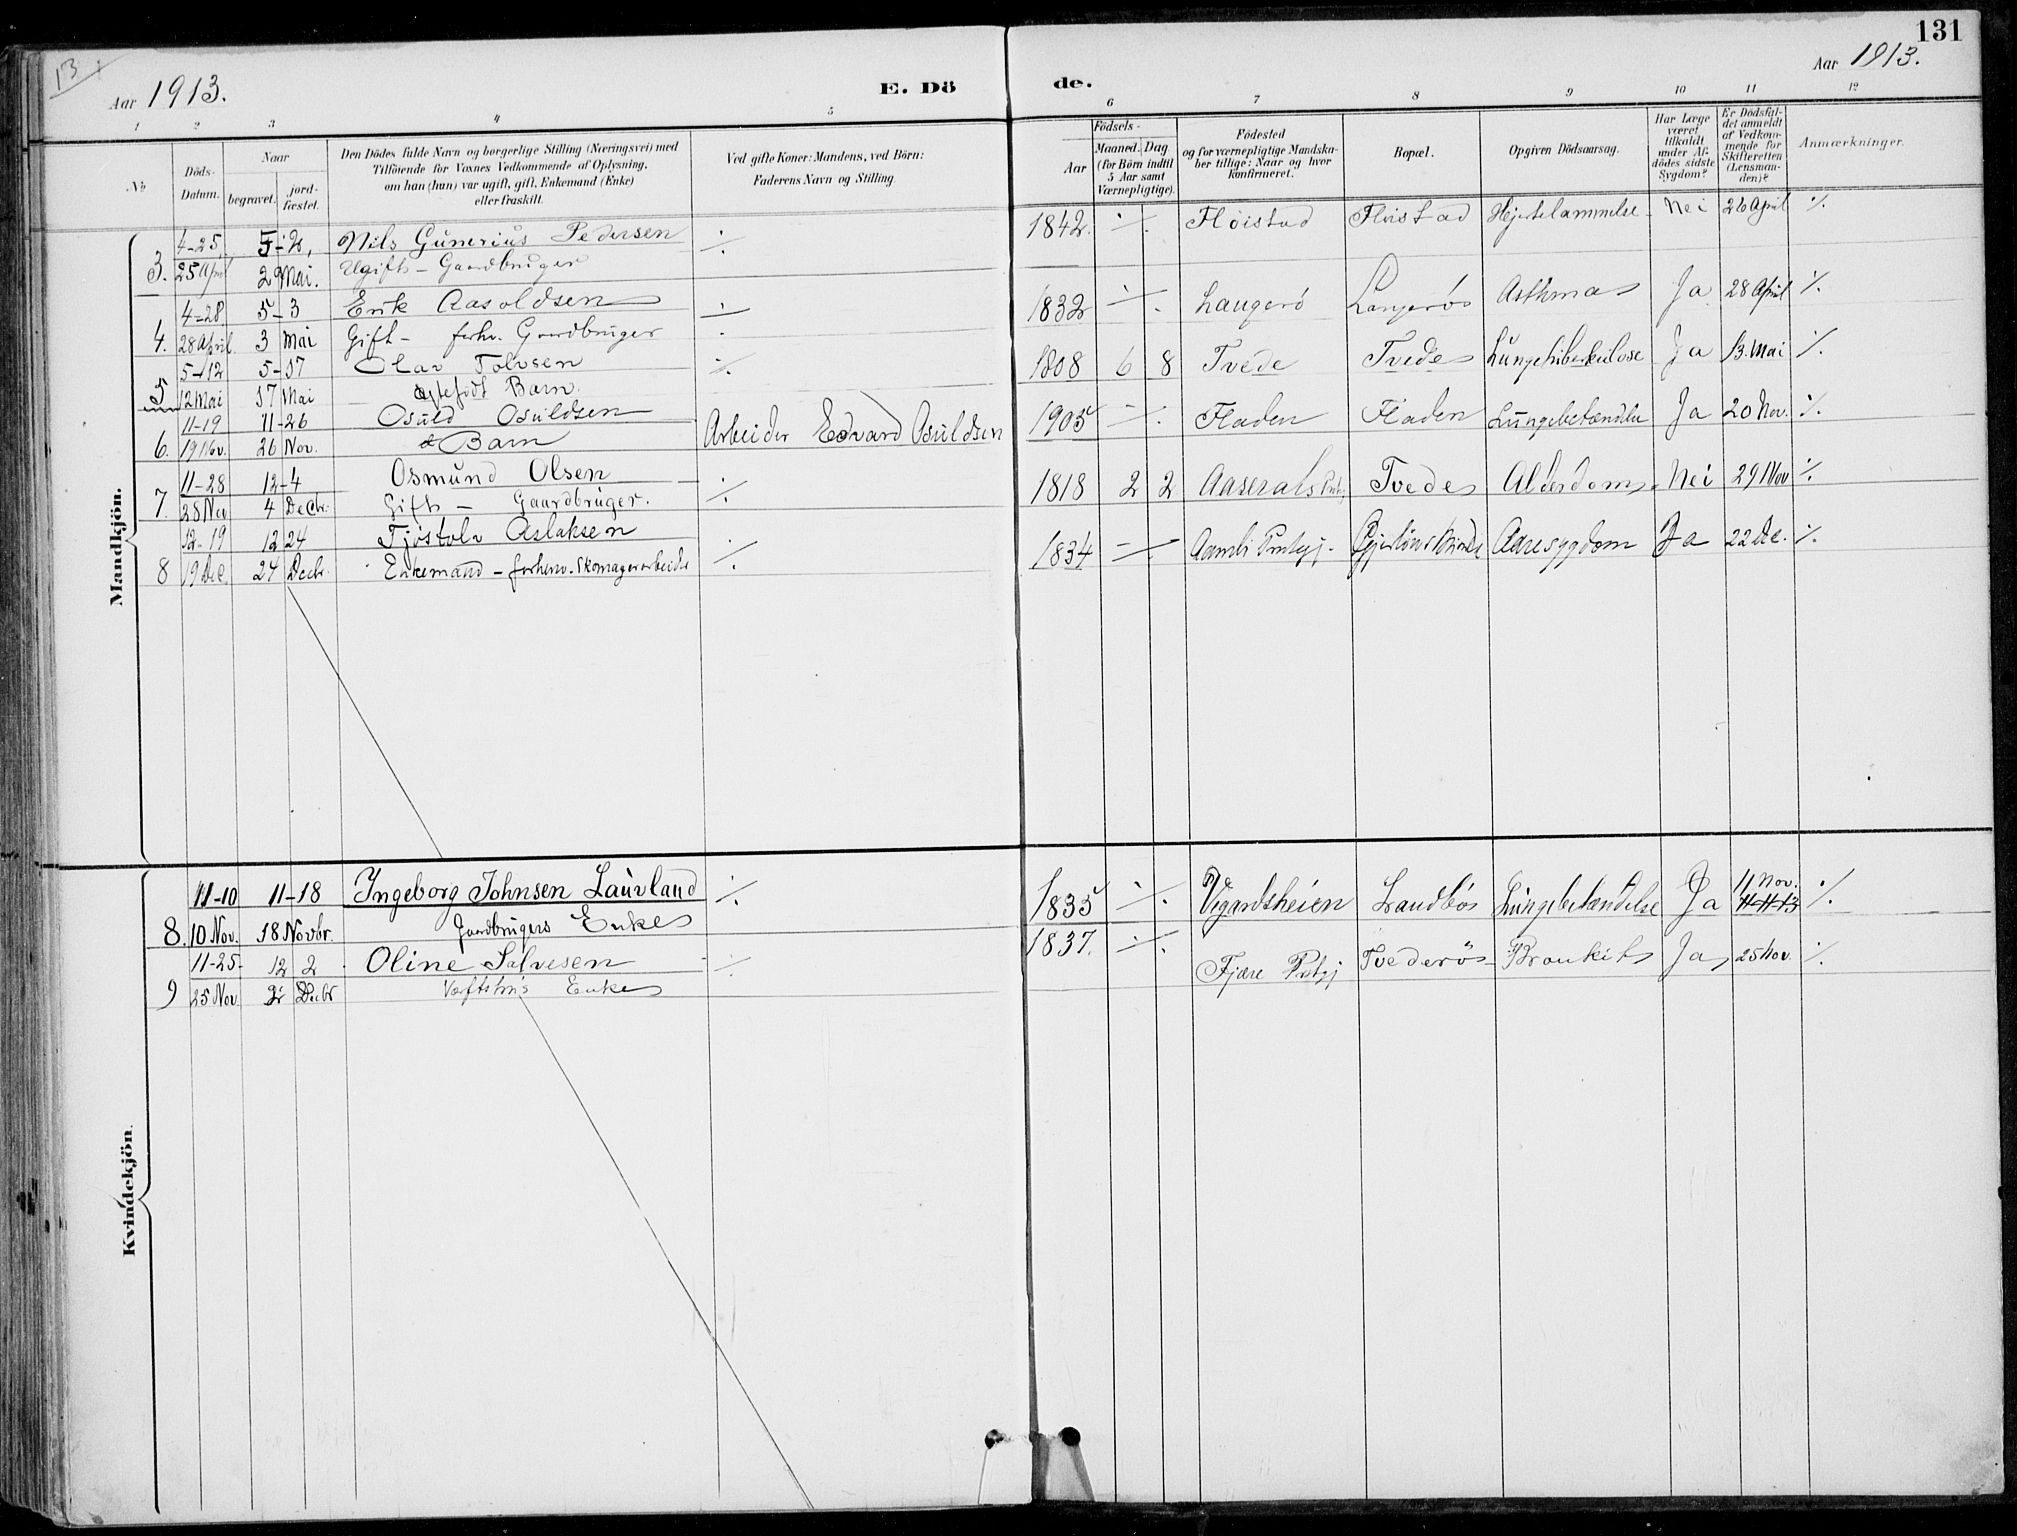 131
13
Aar 1913.
E. Dö
de.
Aar 1913.
1 2 3 4 5 6 7 8 9 10 11 12
No
Döds-
Datum.
Naar
begravet.
jord-
fæstet.
Den Dödes fulde Navn og borgerlige Stilling (Næringsvei) med
Tilföiende for Voxnes Vedkommende af Oplysning,
om han (hun) var ugift, gift, Enkemand (Enke)
eller fraskilt.
Ved gifte Koner: Mandens, ved Börn:
Faderens Navn og Stilling
Födsels-
Aar
Maaned. Dag
(for Börn indtil
5 Aar samt
Værnepligtige).
Födested
og for værnepligtige Mandskaber tillige: Naar og hvor
konfirmeret.
Bopæl.
Opgiven Dödsaarsag.
Har Læge
været
tilkaldt
under Afdödes sidste
Sygdom?
Er Dödsfaldet anmeldt
af Vedkommende for
Skifteretten
(Lensmanden)?
Anmærkninger.
Mandkjön.
4-25 5-2, Nils Gunerius Pedersen ./. 1842. ./. Flöistad Flöistad Hjertelammelse Nei 26 April ./.
3. 25 April 2 Mai. Ugift - Gaardbruger
4-28 5-3 Erik Aasoldsen ./. 1832 ./. Laugerö Langerö Asthma Ja 28 April ./.
4. 28 April 3 Mai Gift - forhv. Gaardbruger
5-12 5-17 Olav Tolvsen ./. 1808 6 8 Tvede Tvede Lungetuberkulose Ja 13. Mai ./.
5 12 Mai 17 Mai Ægtefödt Barn.
11-19 11-26 Osuld Osuldsen 1905 ./. Fladen Fladen Lungebetændelse Ja 20 Nov. ./.
6. 19 Nov. 26 Nov. Barn Arbeider Edvard Osuldsen
11-28 12-4 Osmund Olsen ./. 1818 2 2 Aaserals Tvede Alderdom Nei 29 Nov ./.
7. 28 Nov 4 Decbr. Gift - Gaardbruger.
12-19 12 24 Tjöstolv Aslaksen ./. 1834 ./. Aamli Prstgj. Aaresygdom Ja 22 De. ./.
8 19 Dec. 24 Decbr. Enkemand - forhenv. Skomagerarbeider
Kvindekjön.
11-10 11-18 Ingeborg Johnsen Lauvland ./. 1835 ./. Vegardsheien Landbö Lungebetændelse Ja 11 Nov. ./.
11-11-13
8. 10 Nov. 18 Novbr. Gaardbrugers Enke
11-25- 12 2 Oline Salvesen ./. 1837. ./. Fjære Prstgj Tvederö Bronkit Ja, 25 Nov. ./.
9 25 Nov. 2 Decbr Enke